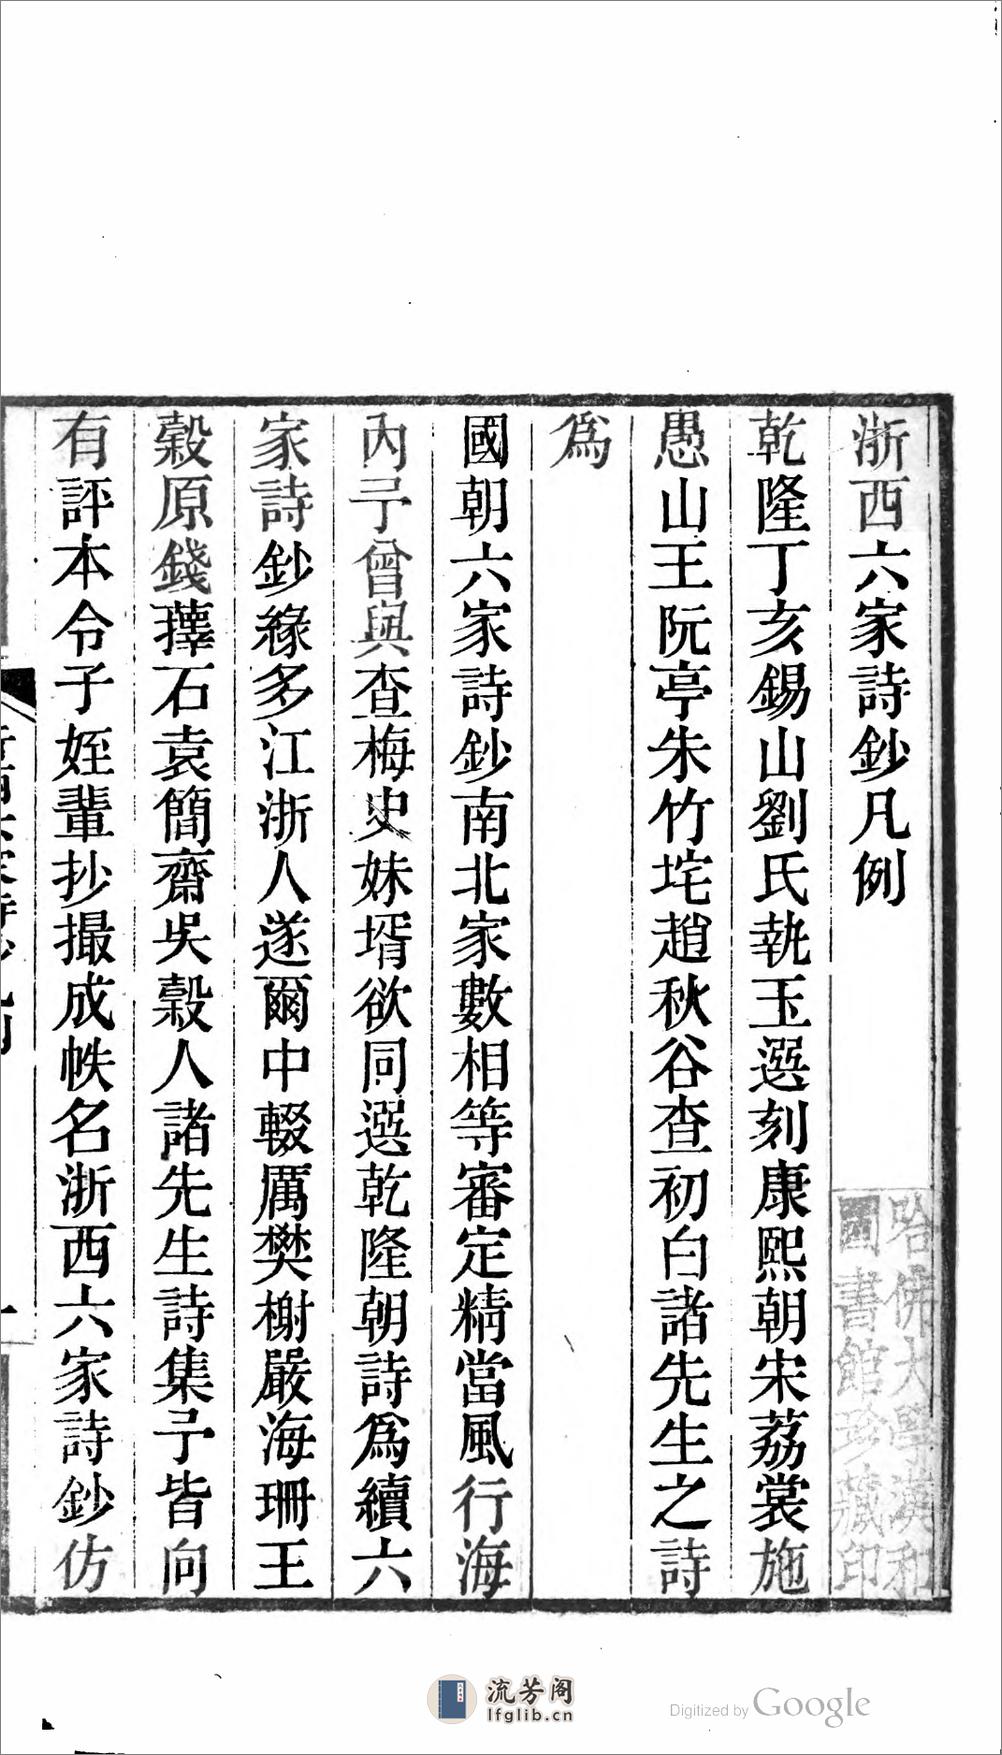 浙西六家詩鈔凡例
乾隆丁亥錫山劉氏執玉選刻康熙朝宋荔裳施
愚山王阮亭朱竹垞趙秋谷查初白諸先生之詩
爲
國朝六家詩鈔南北家數相等審定精當風行海
內予曾與查梅史妹壻欲同選乾隆朝詩爲續六
家詩鈔緣多江浙人遂爾中輟厲樊榭嚴海珊王
榖原錢蘀石袁簡齋吳榖人諸先生詩集予皆向
有評本令子姪輩抄撮成帙名浙西六家詩鈔仿
哈佛大學漢和
圖書館珍藏印
流芳阁
lfglib.cn
Digitized by Google